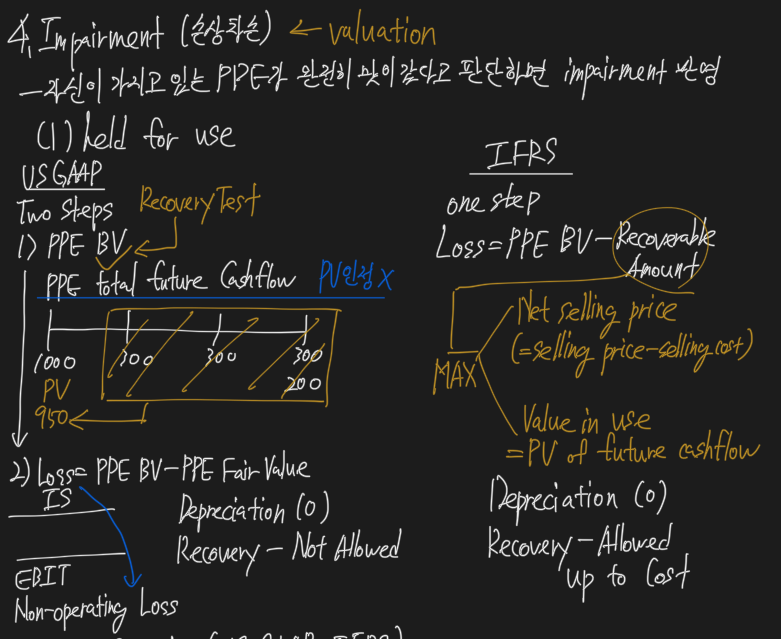 4. Impairment (손상차손) ← valuation
— 자신이 가지고 있는 PPE가 완전히 맛이 갔다고 판단하면 impairment 반영
(1) held for use
US GAAP
Two Steps
Recovery Test
1) PPE BV
PPE total future Cashflow PV인정 X
1000 300 300 300
200
PV
950
2) Loss = PPE BV - PPE Fair Value
IS
Depreciation (0)
Recovery - Not Allowed
EBIT
Non-operating Loss
IFRS
one step
Loss = PPE BV - Recoverable
Amount
MAX
Net selling price
(= selling price - selling cost)
Value in use
= PV of future cashflow
Depreciation (0)
Recovery - Allowed
up to Cost